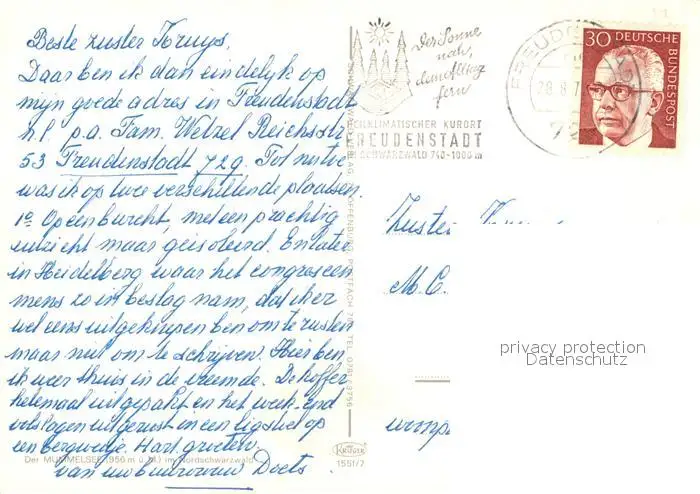 Beste zuster Kruys,
Daar ben ik dan eindelyk op
mijn goede adres in Freudenstadt
n.l. p.a. Fam. Wetzel Reichsstr
53 Freudenstadt 729. Tot nu toe
was ik op twee verschillende plaatsen.
1e op een burcht, met een prachtig
uitzicht maar geisoleerd. En later
in Heidelberg waar het congres een
mens zo in beslag nam, dat ik er
wel eens uitgeknepen ben om te rusten
maar niet om te schrijven. Hier ben
ik weer thuis in de vreemde. De koffer
helemaal uitgepakt en het week-end
volslagen uitgerust in een ligstoel op
een bergweitje. Hart. groeten
van uw buurvrouw Doets.
Der MUMMELSEE (1956 m ü. M.) im Nordschwarzwald
KRÜGER
1551/7
Der Sonne
nach,
dem Alltag
fern
HEILKLIMATISCHER KURORT
FREUDENSTADT
SCHWARZWALD 740-1000 m
FREUDENSTADT
28.8.7
72
30 DEUTSCHE
BUNDESPOST
Zuster
M.C.
privacy protection
Datenschutz